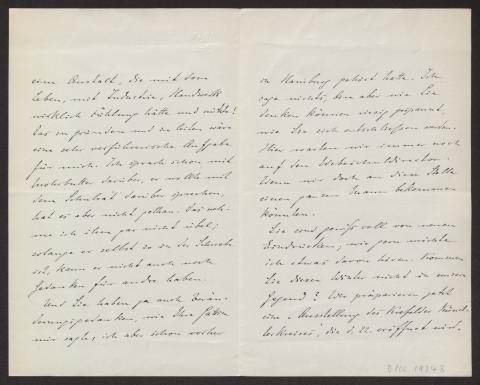 eine Anstalt, die mit dem
Leben, mit Industrie, Handwerk
wirklich Fühlung hätte und
Das zu gründen und zu leiten wäre
eine sehr verführerische Aufgabe
für mich. Ich sprach schon mit
darüber, er wollte mit
dem darüber sprechen,
hat es aber nicht gethan. Das neh-
me ich ihm gar nicht übel;
solange er selbst so in der Schwebe
ist, kann er nicht auch noch
Gedanken für andre haben.
Und Sie haben ja auch Verän-
derungsgedanken, wie Ihre
mir sagte; ich aber schon vorher
in Hamburg gehört hatte. Ich
sage nichts, bin aber wie Sie
denken können riesig gespannt,
wie Sie sich entschliessen werden.
Hier warten wir immer noch
auf den Director.
Wenn wir doch an diese Stelle
einen ganzen Mann bekommen
könnten.
Sie sind gewiss voll von neuen
Eindrücken; wie gern möchte
ich etwas davon hören. Kommen
Sie diesen Winter nicht in unsere
Gegend? Wir präparieren jetzt
eine "Ausstellung des Krefelder Künst-
lerkreises", die d. 22. eröffnet wird.